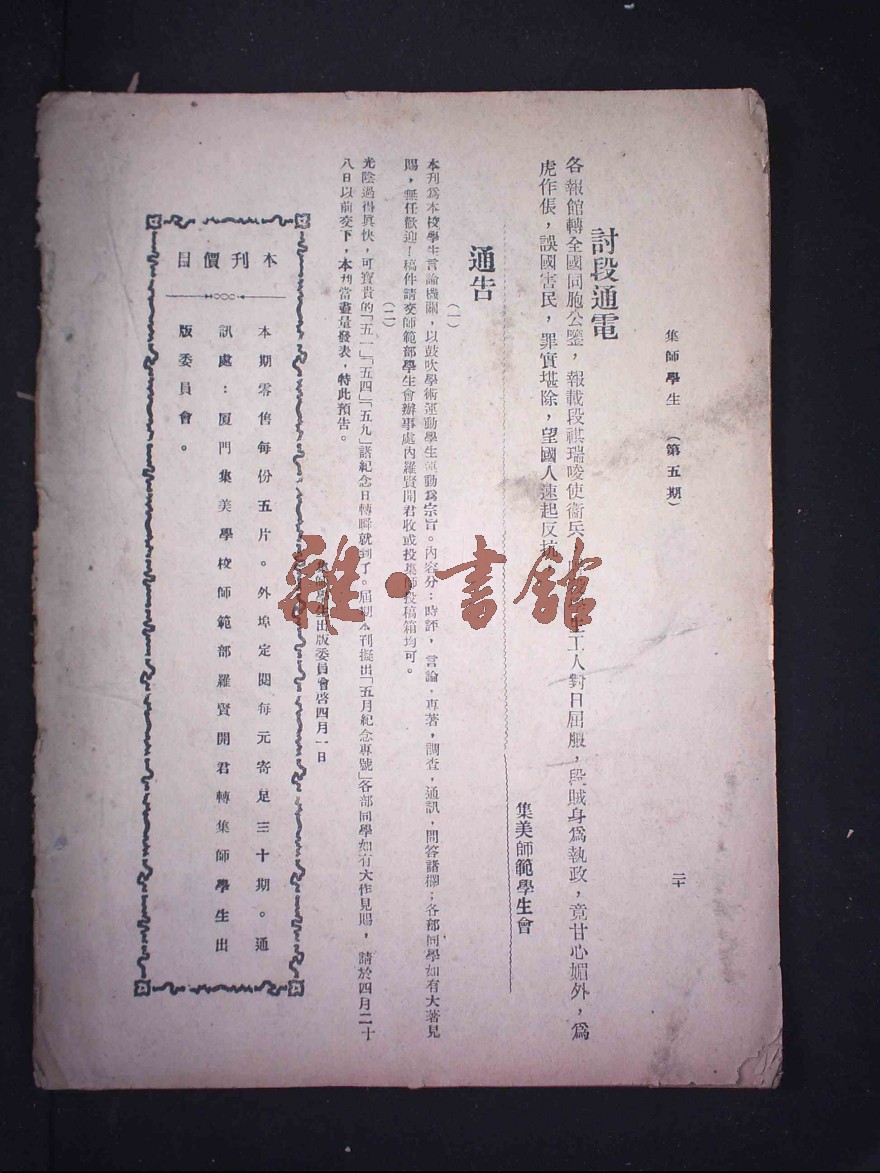 集師學生 （第五期）
二十
討段通電
各報館轉全國同胞公鑒，報載段祺瑞唆使衞兵，工人對日屈服，段賊身爲執政，竟甘心媚外，爲
虎作倀，誤國害民，罪實堪除，望國人速起反抗
集美師範學生會
通告
（一）
本刊爲本校學生言論機關，以鼓吹學術運動學生運動爲宗旨。內容分：時評，言論，專著，調查，通訊，問答諸欄；各部同學如有大著見
賜，無任歡迎！稿件請交師範部學生會辦事處內羅賢開君收或投集師投稿箱均可。
（二）
光陰過得眞快，可寶貴的「五一」「五四」「五九」諸紀念日轉瞬就到了。屆期本刊擬出「五月紀念專號」各部同學如有大作見賜，請於四月二十
八日以前交下，本刊當盡量發表，特此預告。
集師學生出版委員會啓四月一日
本刊價目
本期零售每份五片。外埠定閱每元寄足三十期。通
訊處：厦門集美學校師範部羅賢開君轉集師學生出
版委員會。
雜·書館